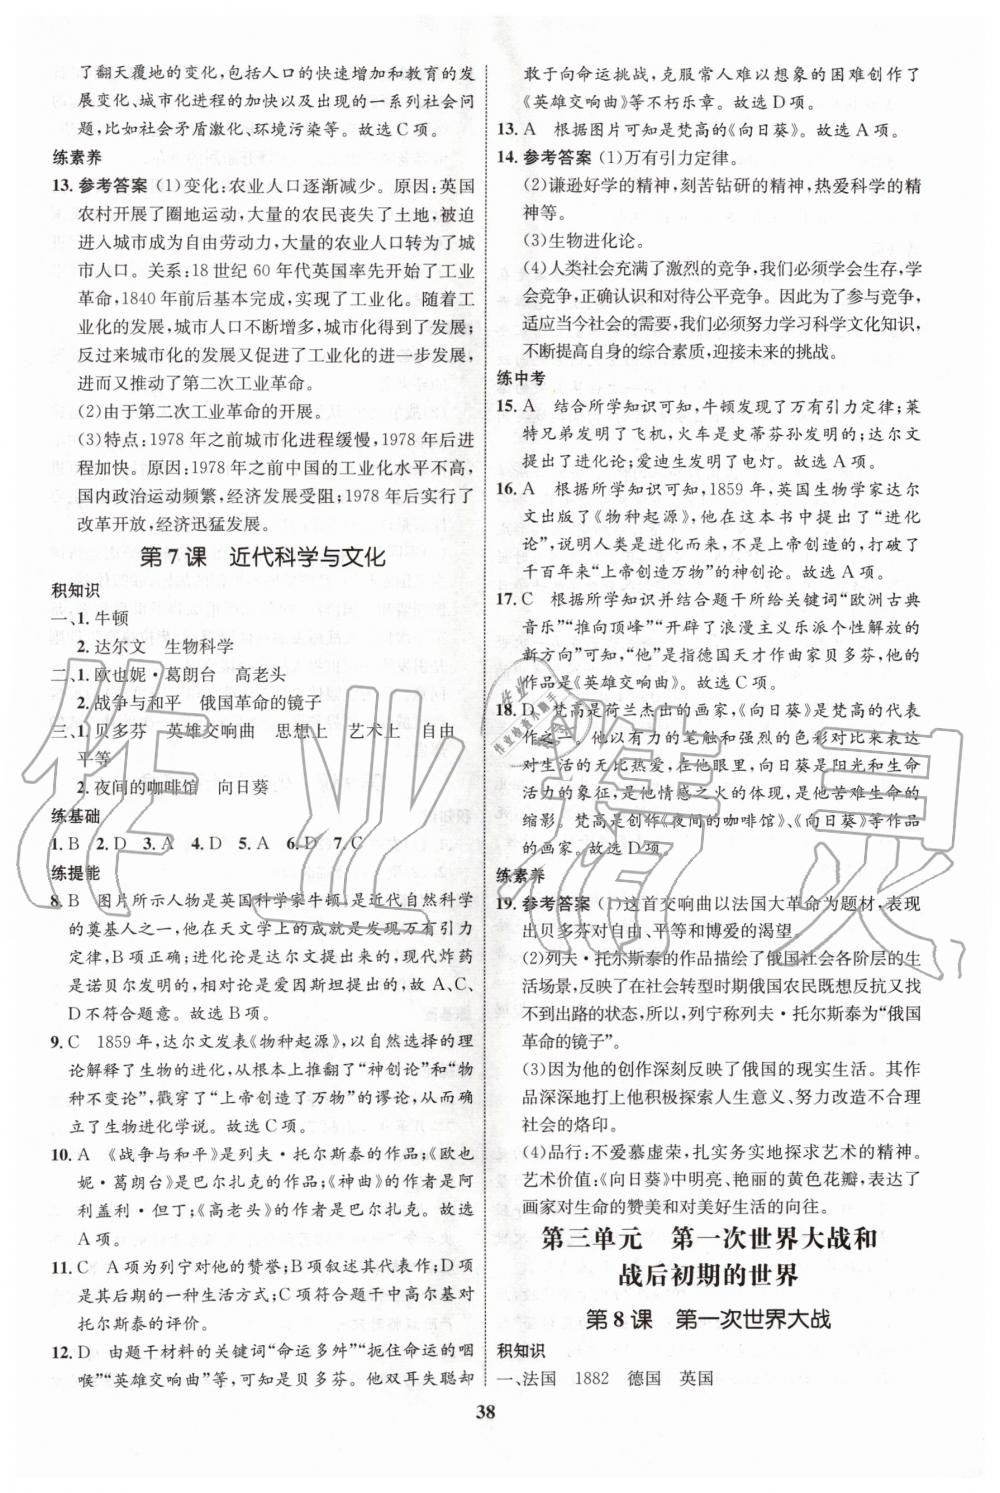 了翻天覆地的变化,包括人口的快速增加和教育的发
展变化、城市化进程的加快以及出现的一系列社会问
题,比如社会矛盾激化、环境污染等。故选C项。
练素养
13. 参考答案 (1)变化:农业人口逐渐减少。原因:英国
农村开展了圈地运动,大量的农民丧失了土地,被迫
进入城市成为自由劳动力,大量的农业人口转为了城
市人口。关系:18世纪60年代英国率先开始了工业
革命,1840年前后基本完成,实现了工业化。随着工
业化的发展,城市人口不断增多,城市化得到了发展;
反过来城市化的发展又促进了工业化的进一步发展,
进而又推动了第二次工业革命。
(2)由于第二次工业革命的开展。
(3)特点:1978年之前城市化进程缓慢,1978年后进
程加快。原因:1978年之前中国的工业化水平不高,
国内政治运动频繁,经济发展受阻;1978年后实行了
改革开放,经济迅猛发展。
第7课 近代科学与文化
积知识
一、1.牛顿
2.达尔文 生物科学
二、1.欧也妮·葛朗台 高老头
2.战争与和平 俄国革命的镜子
三、1.贝多芬 英雄交响曲 思想上 艺术上 自由
平等
2.夜间的咖啡馆 向日葵
练基础
1. B 2. D 3. A 4. D 5. A 6. D 7. C
练提能
8. B 图片所示人物是英国科学家牛顿,是近代自然科学
的奠基人之一,他在天文学上的成就是发现万有引力
定律,B项正确;进化论是达尔文提出来的,现代炸药
是诺贝尔发明的,相对论是爱因斯坦提出的,故A、C、
D不符合题意。故选B项。
9. C 1859年,达尔文发表《物种起源》,以自然选择的理
论解释了生物的进化,从根本上推翻了“神创论”和“物
种不变论”,戳穿了“上帝创造了万物”的谬论,从而确
立了生物进化学说。故选C项。
10. A 《战争与和平》是列夫·托尔斯泰的作品;《欧也
妮·葛朗台》是巴尔扎克的作品;《神曲》的作者是阿
利盖利·但丁;《高老头》的作者是巴尔扎克。故选
A项。
11. C A项为列宁对他的赞誉;B项叙述其代表作;D项
是其后期的一种生活方式;C项符合题干中高尔基对
托尔斯泰的评价。
12. D 由题干材料的关键词“命运多舛”“扼住命运的咽
喉”“英雄交响曲”等,可知是贝多芬。他双耳失聪却
敢于向命运挑战,克服常人难以想象的困难创作了
《英雄交响曲》等不朽乐章。故选D项。
13. A 根据图片可知是梵高的《向日葵》。故选A项。
14. 参考答案 (1)万有引力定律。
(2)谦逊好学的精神,刻苦钻研的精神,热爱科学的精
神等。
(3)生物进化论。
(4)人类社会充满了激烈的竞争,我们必须学会生存,学
会竞争,正确认识和对待公平竞争。因此为了参与竞争,
适应当今社会的需要,我们必须努力学习科学文化知识,
不断提高自身的综合素质,迎接未来的挑战。
练中考
15. A 结合所学知识可知,牛顿发现了万有引力定律;莱
特兄弟发明了飞机,火车是史蒂芬孙发明的;达尔文
提出了进化论;爱迪生发明了电灯。故选A项。
16. A 根据所学知识可知,1859年,英国生物学家达尔
文出版了《物种起源》,他在这本书中提出了“进化
论”,说明人类是进化而来,不是上帝创造的,打破了
千百年来“上帝创造万物”的神创论。故选A项。
17. C 根据所学知识并结合题干所给关键词“欧洲古典
音乐”“推向顶峰”“开辟了浪漫主义乐派个性解放的
新方向”可知,“他”是指德国天才作曲家贝多芬,他
的作品是《英雄交响曲》。故选C项。
18. D 梵高是荷兰杰出的画家,《向日葵》是梵高的代表
作之一。他以有力的笔触和强烈的色彩对比来表达
对生活的无比热爱,在他眼里,向日葵是阳光和生命
活力的象征,是他情感之火的体现,是他苦难生命的
缩影。梵高是创作《夜间的咖啡馆》、《向日葵》等作品
的画家。故选D项。
练素养
19. 参考答案 (1)这首交响曲以法国大革命为题材,表现
出贝多芬对自由、平等和博爱的渴望。
(2)列夫·托尔斯泰的作品描绘了俄国社会各阶层的生
活场景,反映了在社会转型时期俄国农民既想反抗又找
不到出路的状态,所以,列宁称列夫·托尔斯泰为“俄国
革命的镜子”。
(3)因为他的创作深刻反映了俄国的现实生活。作
品深深地打上他积极探索人生意义、努力改造不合理
社会的烙印。
(4)品行:不爱慕虚荣,扎实务实地探求艺术的精神。
艺术价值:《向日葵》中明亮、艳丽的黄色花瓣,表达了
画家对生命的赞美和对美好生活的向往。
第三单元 第一次世界大战和
战后初期的世界
第8课 第一次世界大战
积知识
一、法国 1882 德国 英国
38
作业精灵